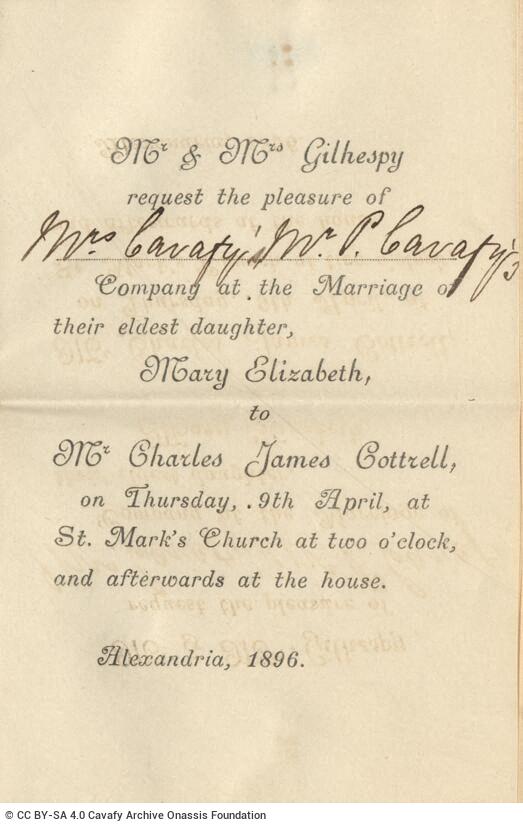 Mr & Mrs Gilhespy
request the pleasure of
Mrs Cavafy's Mr. P. Cavafy's
Company at the Marriage of
their eldest daughter,
Mary Elizabeth,
to
Mr Charles James Cottrell,
on Thursday, 9th April, at
St. Mark's Church at two o'clock,
and afterwards at the house.
Alexandria, 1896.
© CC BY-SA 4.0 Cavafy Archive Onassis Foundation